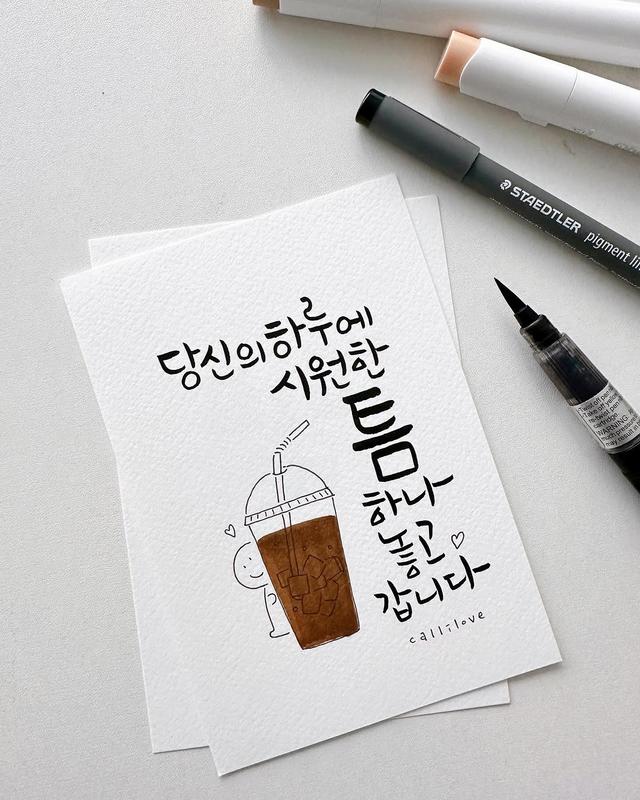 당신의 하루에
시원한
틈
하나
놓고
갑니다
callilove
STAEDTLER pigment lin